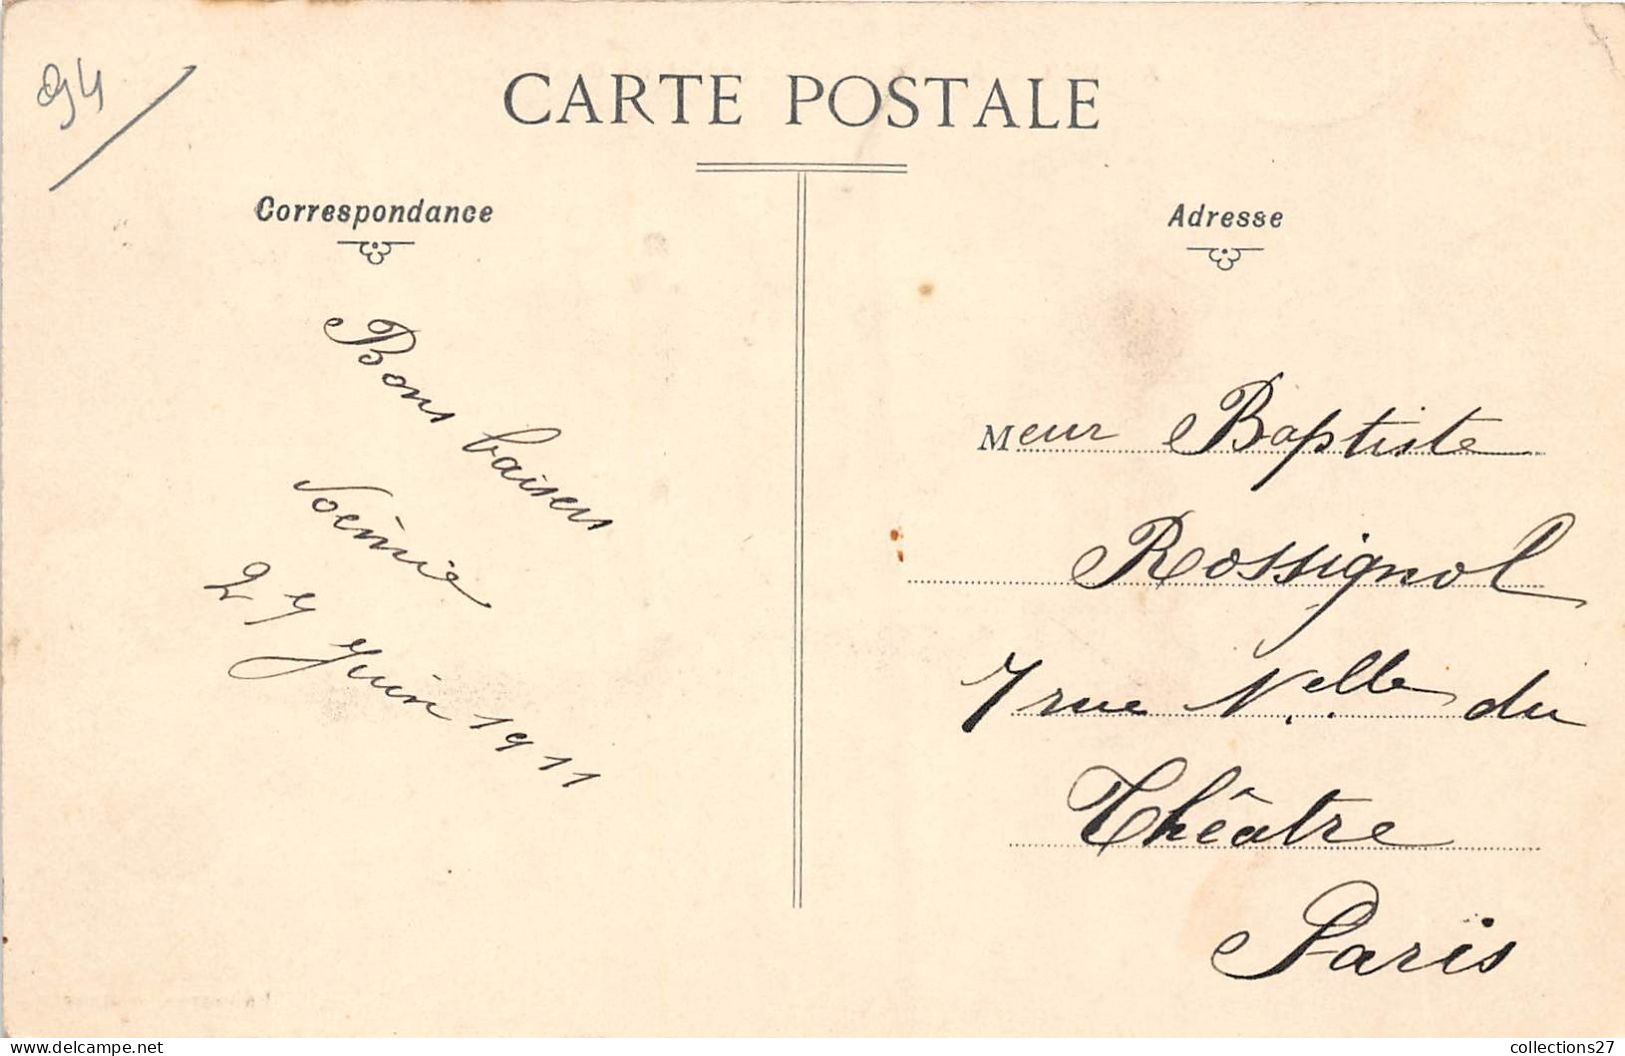 94
CARTE POSTALE
Correspondance
Adresse
Bons baisers
Noémie
27 Juin 1911
Meur Baptiste
Rossignol
7 rue N.elle du
Théâtre
Paris
collections27
www.delcampe.net